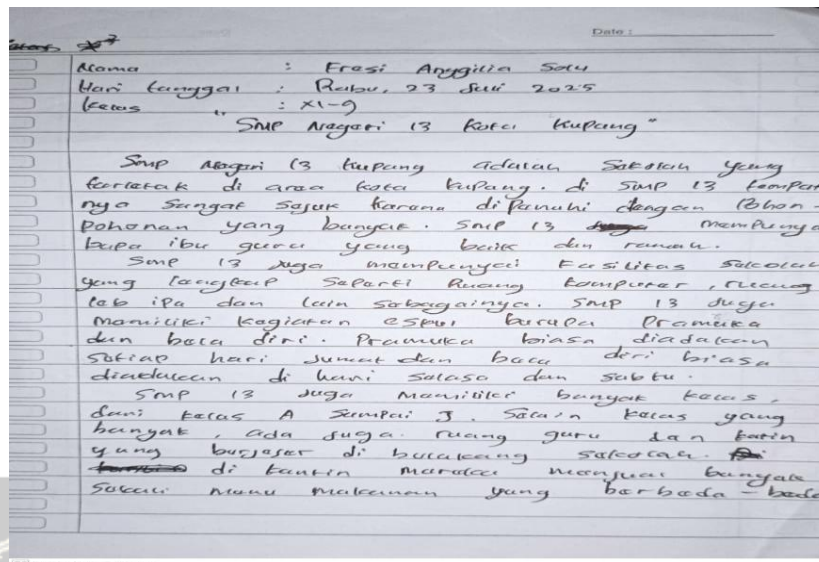 Date :
Nama : Fresi Anggilia Solu
Hari tanggal : Rabu, 23 Juli 2025
kelas : XI-9
"SMP Negeri 13 Kota Kupang"
Smp Negeri 13 kupang adalah Sekolah yang
terletak di area kota kupang. di SMP 13 tempat
nya Sangat Sejuk karena dipenuhi dengan Pohon-
pohonan yang banyak. SMP 13 mempunya
bapa ibu guru yang baik dan ramah.
Smp 13 juga mempunyai Fasilitas Sekolah
yang lengkap Seperti Ruang komputer, ruang
lab ipa dan lain Sebagainya. SMP 13 juga
Memiliki kegiatan eskul berupa Pramuka
dan bela diri. Pramuka biasa diadakan
Setiap hari Jumat dan bela diri biasa
diadakan di hari Selasa dan Sabtu.
SMP 13 Juga Memiliki banyak kelas,
dari kelas A Sampai J. Selain kelas yang
banyak, ada juga ruang guru dan
yang berjejer di belakang Sekolah.
di kantin mereka menjual banyak
Sekali Menu Makanan yang berbeda-beda